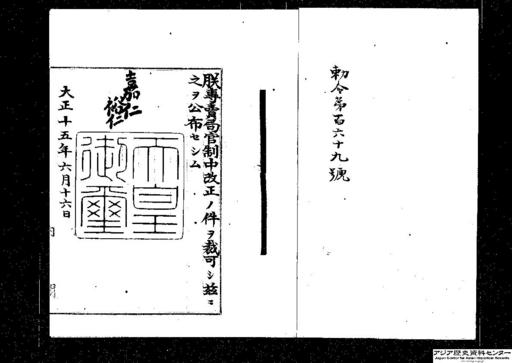 勅令第百六十九號
朕專賣局官制中改正ノ件ヲ裁可シ茲ニ
之ヲ公布セシム
嘉仁
裕仁
天皇
御璽
大正十五年六月十六日
内
アジア歴史資料センター
Japan Center for Asian Historical Records